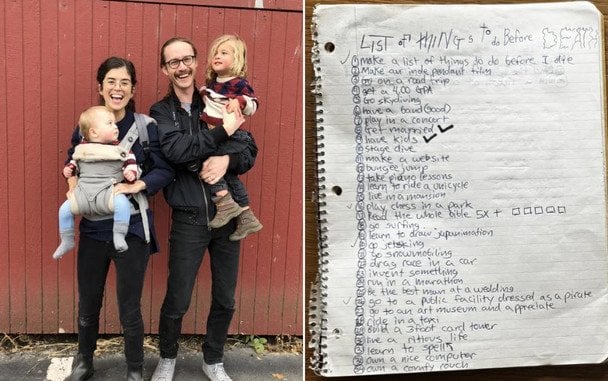 LIST of THINGS to do Before DEATH
1 make a list of things to do before I die
2 Make our independant film
3 Go on a road trip
4 get a 4.00 GPA
5 Go skydiving
6 have a band (Good)
7 play in a concert
8 Get married ✓
9 have kids ✓
10 stage dive
11 make a website
12 bungee jump
13 take piano lessons
14 learn to ride a unicycle
15 live in a mansion
16 play chess in a park
17 Read the whole bible 5X + □□□□□
18 go surfing
19 learn to draw japanimation
20 go jetskiing
21 go snowmobiling
22 drag race in a car
23 invent something
24 run in a marathon
25 Be the best man at a wedding
26 go to a public facility dressed as a pirate
27 go to an art museum and appreciate
28 ride in a taxi
29 build a 3foot card tower
30 live a ritious life
31 learn to spell
32 own a nice computer
33 own a county couch